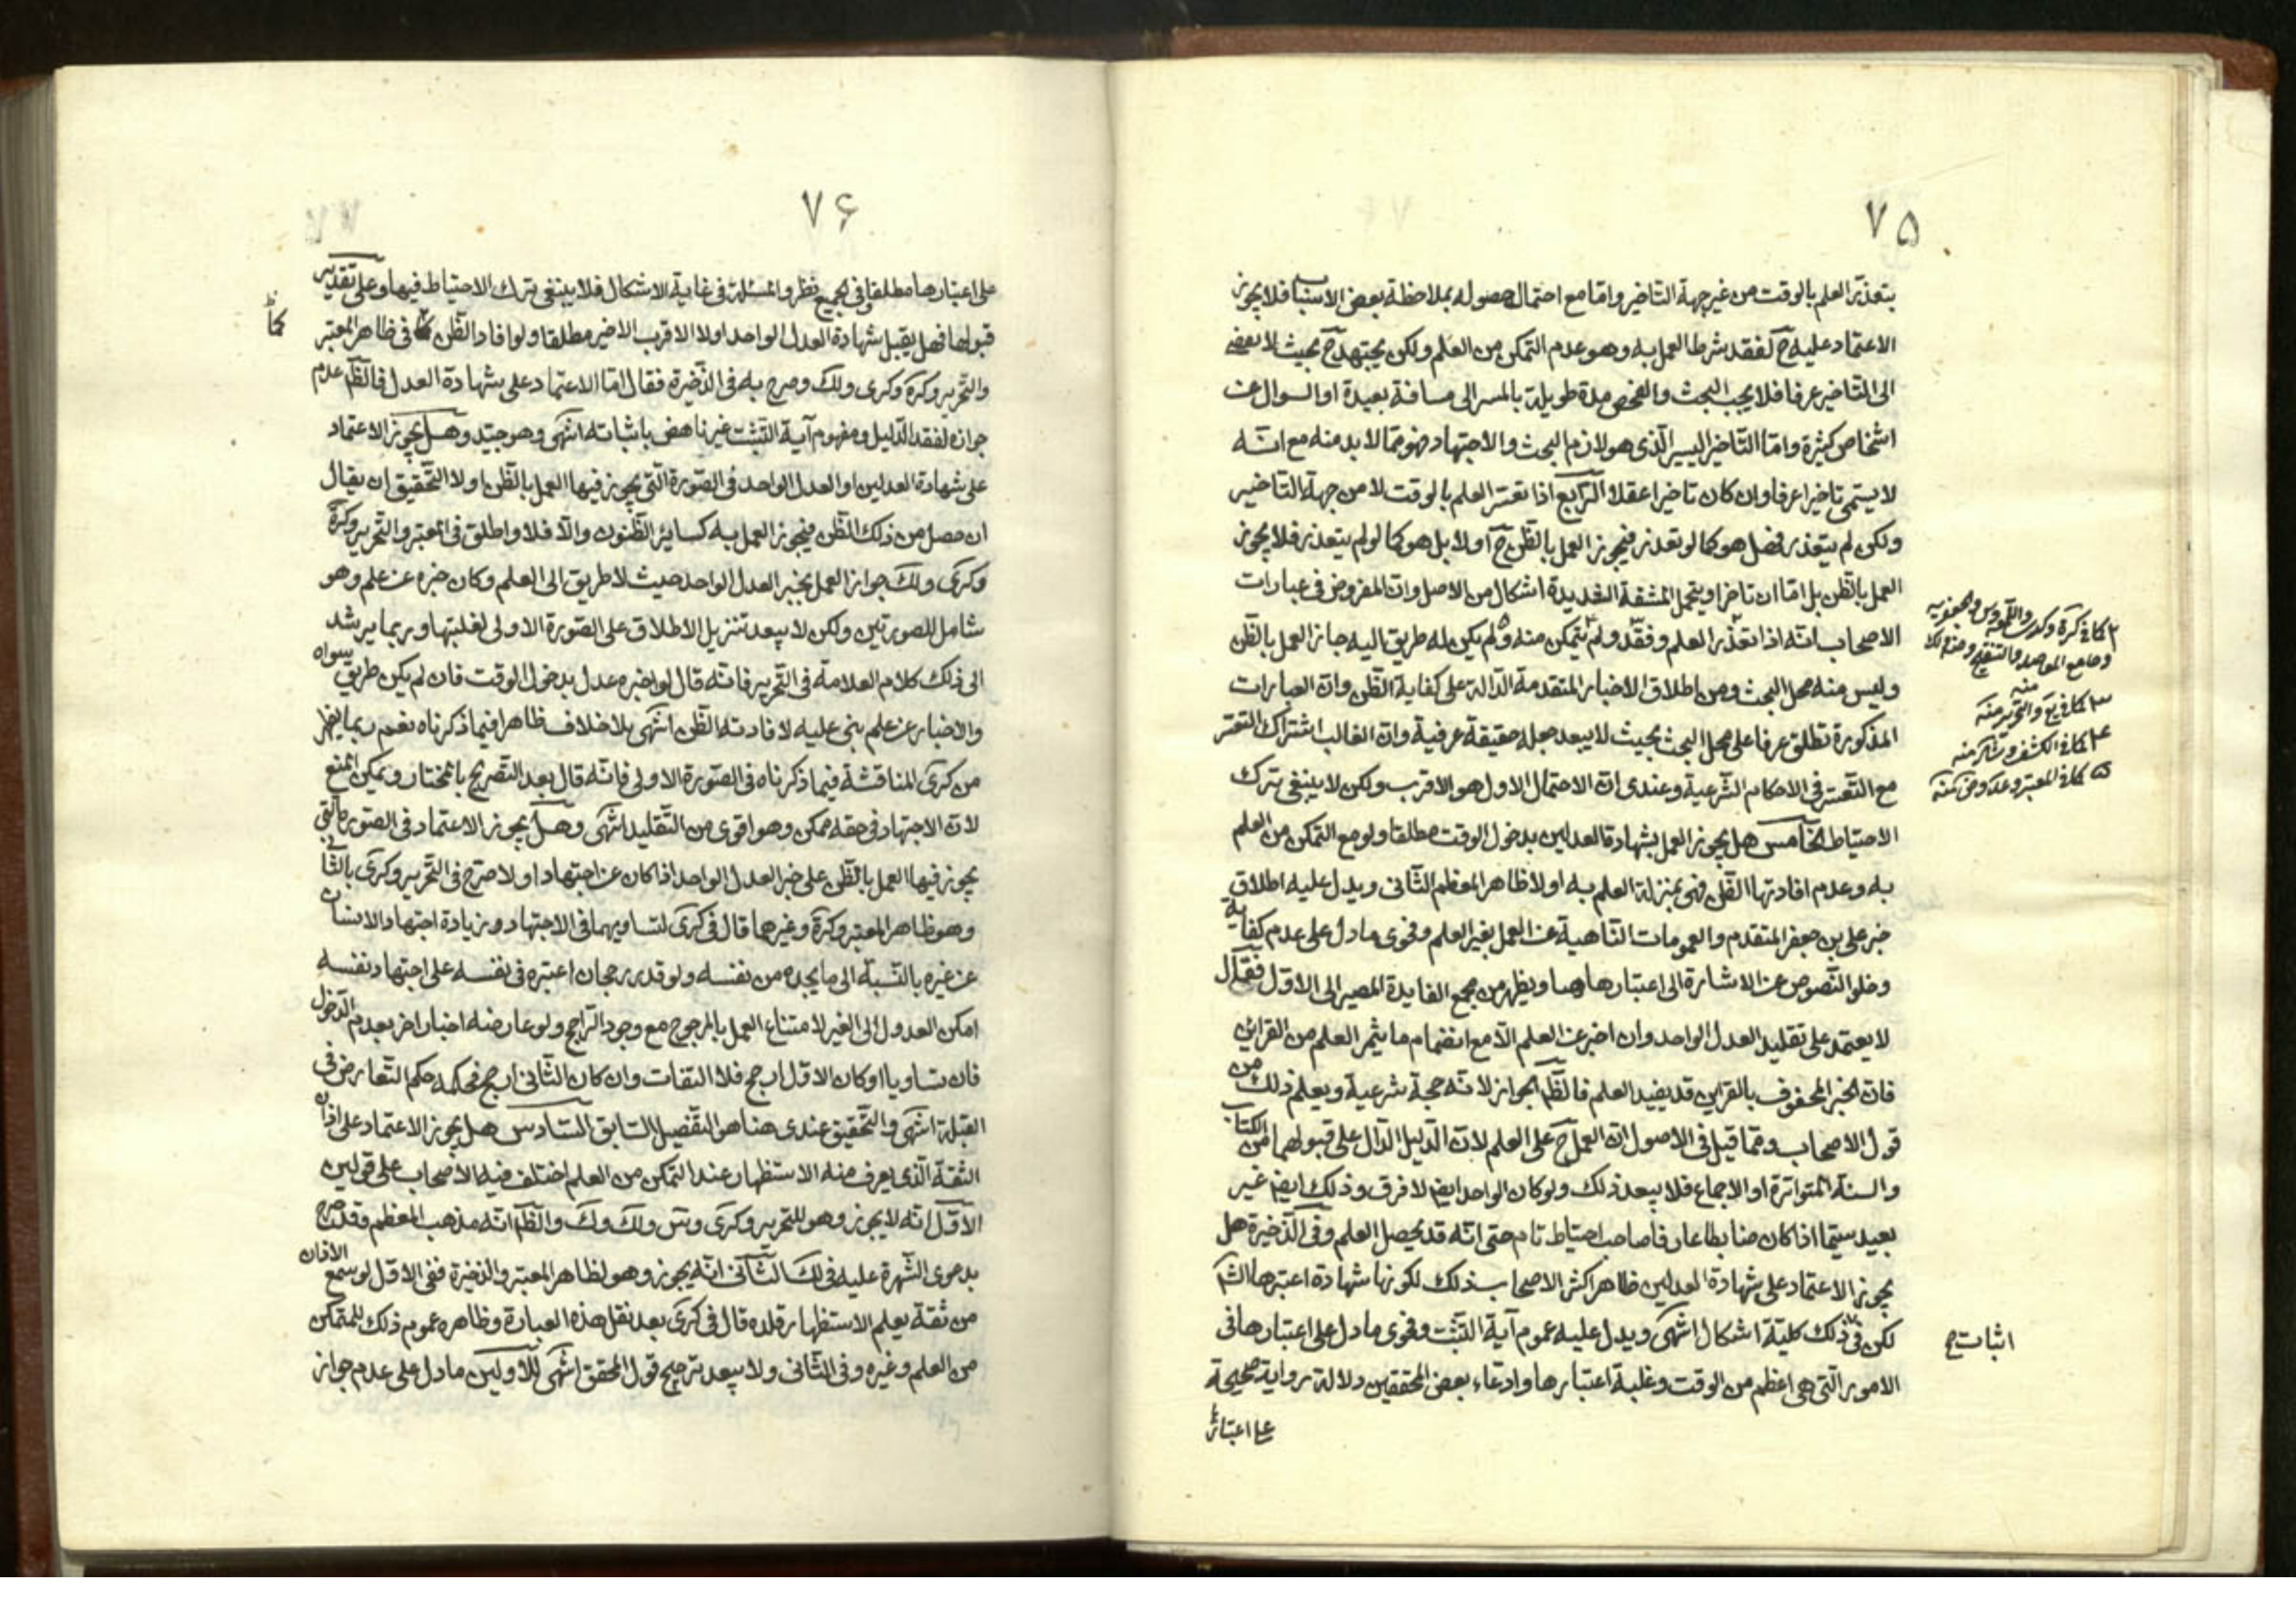 ٧٥
يتعذر العلم بالوقت من غير جهة التاخير وامّا مع احتمال حصوله بملاحظة بعض الاسباب فلا يجوز
الاعتماد عليه ح لفقد شرط العمل به وهو عدم التمكن من العلم ولكن يجتهد ح بحيث لا يفضى
الى التاخير عرفا فلا يجب البحث والفحص مدة طويلة بالمسر الى مسافة بعيدة او السوال عن
اشخاص كثيرة وامّا التاخير اليسير الّذى هو لازم البحث والاجتهاد فهو ممّا لا بد منه مع انّه
لا يسمّى تاخيرا عرفا وان كان تاخيرا عقلا الرّابع اذا تعسّر العلم بالوقت لا من جهة التاخير
ولكن لم يتعذر فهل هو كما لو تعذر فيجوز العمل بالظّن ح اولا بل هو كما لو لم يتعذر فلا يجوز
العمل بالظّن بل امّا ان تاخر او يتحمل المشقة الشديدة اشكال من الاصل وانّ المفروض فى عبارات
الاصحاب انّه اذا تعذّر العلم وفقد ولم يتمكن منه ولم يكن له طريق اليه جاز العمل بالظّن
وليس منه محل البحث ومن اطلاق الاخبار المتقدمة الدّالة على كفاية الظّن وانّ العبارات
المذكورة تطلق عرفا على محل البحث بحيث لا يبعد جعله حقيقة عرفية وانّ الغالب اشتراك التعسّر
مع التعسّر فى الاحكام الشّرعية وعندى انّ الاحتمال الاول هو الاقرب ولكن لا ينبغى ترك
الاحتياط الخامس هل يجوز العمل بشهادة العدلين بدخول الوقت مطلقا ولو مع التمكن من العلم
به وعدم افادتها الظّن فهى بمنزلة العلم به اولا ظاهر المعظم الثّانى ويدل عليه اطلاق
خبر على بن جعفر المتقدم والعمومات النّاهية عن العمل بغير العلم وفحوى ما دل على عدم كفاية
وخلو النّصوص عن الاشارة الى اعتبارها ويظهر من مجمع الفايدة المصير الى الاوّل فقال
لا يعتمد على تقليد العدل الواحد وان اخبر عن العلم الّا مع انضمام ما يثمر العلم من القراين
فانّ الخبر المحفوف بالقراين قد يفيد العلم فالظّم الجواز لانّه حجة شرعية ويعلم ذلك من
قول الاصحاب وممّا قيل فى الاصول انّ العمل ح على العلم لانّ الدّليل الدّال على قبولهما من الكتاب
والسنة المتواترة او الاجماع فلا يبعد ذلك ولو كان الواحد ايضا لا فرق وذلك ايضا غير
بعيد سيّما اذا كان ضابطا عارفا صاحب احتياط تام حتى انّه قد يحصل العلم وفى الذّخيرة هل
يجوز الاعتماد على شهادة العدلين ظاهر اكثر الاصحاب ذلك لكونها شهادة اعتبرها الشّا
لكن فى ذلك كليّة اشكال انتهى ويدل عليه عموم آية التثبّت وفحوى ما دل على اعتبارها فى
الامور الّتى هى اعظم من الوقت وغلبة اعتبارها وادعاء بعض المحققين دلالة رواية صحيحة
على اعتبار
اثبات ح
٧۶
على اعتبارها مطلقا وفى الجميع نظر والمسئلة فى غاية الاشكال فلا ينبغى ترك الاحتياط فيها وعلى تقدير
قبولها فهل يقبل شهادة العدل الواحد اولا الاقرب الاخير مطلقا ولو افاد الظّن كما فى ظاهر المعتبر
والتّحرير وكرة وكرى ولك وصرح به فى الذّخيرة فقال امّا الاعتماد على شهادة العدل فالظّم عدم
جوازه لفقد الدّليل ومفهوم آية التثبّت غير ناهض باثباته انتهى وهو جيّد وهل يجوز الاعتماد
على شهادة العدلين او العدل الواحد فى الصّورة الّتى يجوز فيها العمل بالظّن اولا التّحقيق ان يقال
ان حصل من ذلك الظّن فيجوز العمل به كساير الظّنون والّا فلا واطلق فى المعتبر والتّحرير وكرة
وكرى ولك جواز العمل بخبر العدل الواحد حيث لا طريق الى العلم وكان خبره عن علم وهو
شامل للصورتين ولكن لا يبعد تنزيل الاطلاق على الصّورة الاولى لغلبتها وربما يرشد
الى ذلك كلام العلامة فى التّحرير فانّه قال لو اخبره عدل بدخول الوقت فان لم يكن طريق سواه
والاخبار عن علم بنى عليه لافادته الظّن انتهى بلا خلاف ظاهر فيما ذكرناه نعم ربما يظهر
من كرى المناقشة فيما ذكرناه فى الصّورة الاولى فانّه قال بعد التصريح بالمختار ويمكن المنع
لانّ الاجتهاد فى حقه ممكن وهو اقوى من التّقليد انتهى وهل يجوز الاعتماد فى الصّورة الّتى
يجوز فيها العمل بالظّن على خبر العدل الواحد اذا كان عن اجتهاد اولا صرّح فى التّحرير وكرى بالثّانى
وهو ظاهر المعتبر وكرة وغيرها قال فى كرى لتساويهما فى الاجتهاد وزيادة اجتهاد الانسان
عن غيره بالنّسبة الى ما يجده من نفسه ولو قدر رجحان اعتبره فى نفسه على اجتهاد نفسه
امكن العدول الى الغير لامتناع العمل بالمرجوح مع وجود الرّاجح ولو عارضه اخبار اخر بعدم الدّخول
فان تساويا او كان الاوّل ارجح فلا التفات وان كان الثّانى ارجح فحكمه حكم التّعارض فى
القبلة انتهى والتّحقيق عندى هنا هو التّفصيل السّابق السّادس هل يجوز الاعتماد على اذان
الثّقة الّذى يعرف منه الاستظهار عند التمكن من العلم اختلف فيه الاصحاب على قولين
الاوّل انّه لا يجوز وهو للتّحرير وكرى والظّم انّه مذهب المعظم وقد صرح
بدعوى الشّهرة عليه فى لك الثّانى انّه يجوز وهو لظاهر المعتبر والذّخيرة ففى الاوّل لو سمع الاذان
من ثقة يعلم الاستظهار قلده قال فى كرى بعد نقل هذه العبارة وظاهره عموم ذلك للمتمكن
من العلم وغيره وفى الثّانى ولا يبعد ترجيح قول المحقق انتهى للاولين ما دل على عدم جواز